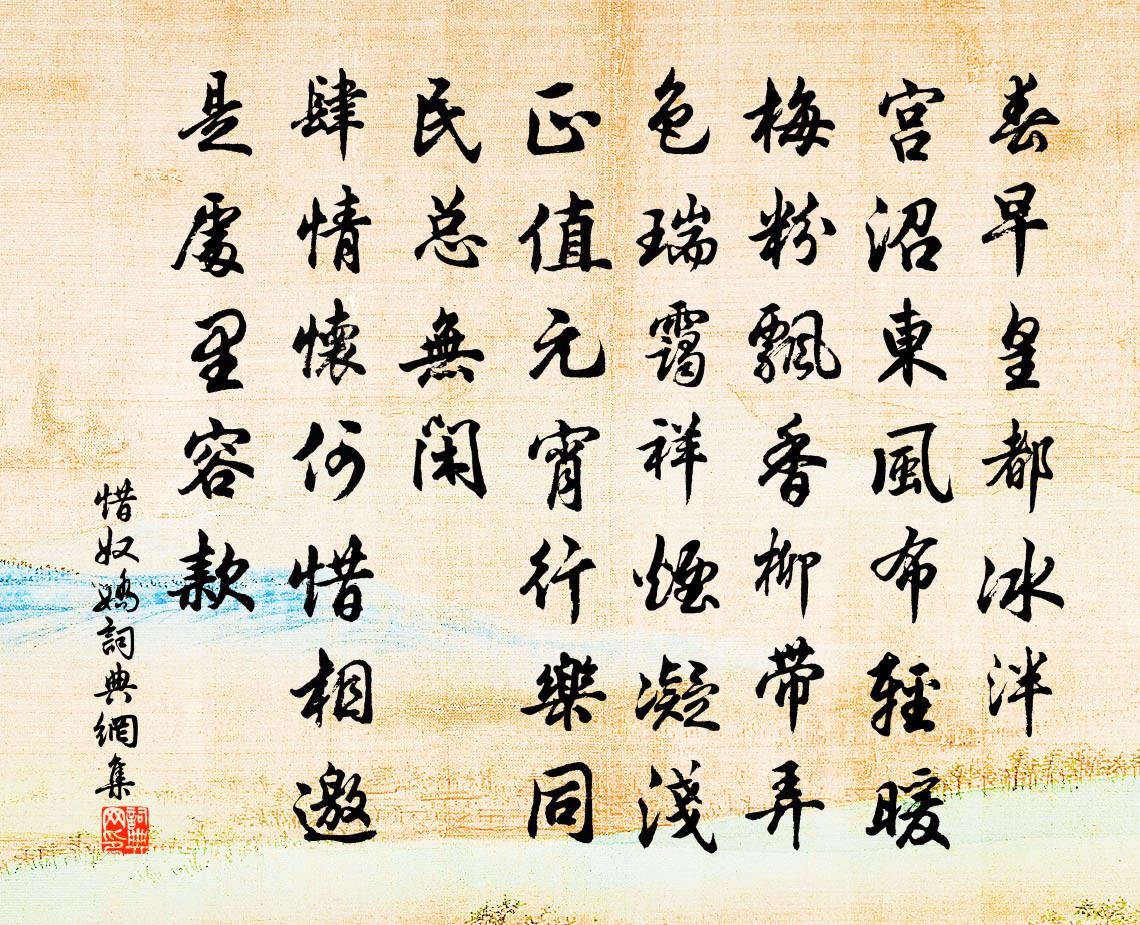 春早皇都冰泮
宮沼東風布輕暖
梅粉飄香柳帶弄
色瑞靄祥煙凝淺
正值元宵行樂同
民總無閑
肆情懷何惜相邀
是處里容款
惜奴嬌詞典網集
詞典網印